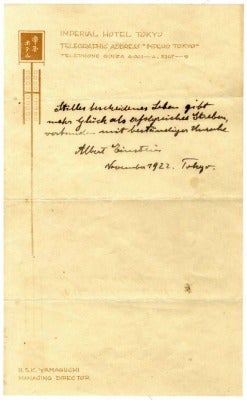 IMPERIAL HOTEL TOKYO
TELEGRAPHIC ADDRESS "IMPEHO TOKYO"
TELEPHONE GINZA
Stilles bescheidenes Leben gibt
mehr Glück als erfolgreiches Streben,
verbunden mit beständiger Unruhe.
Albert Einstein
November 1922. Tokyo.
H.S.K. YAMAGUCHI
MANAGING DIRECTOR